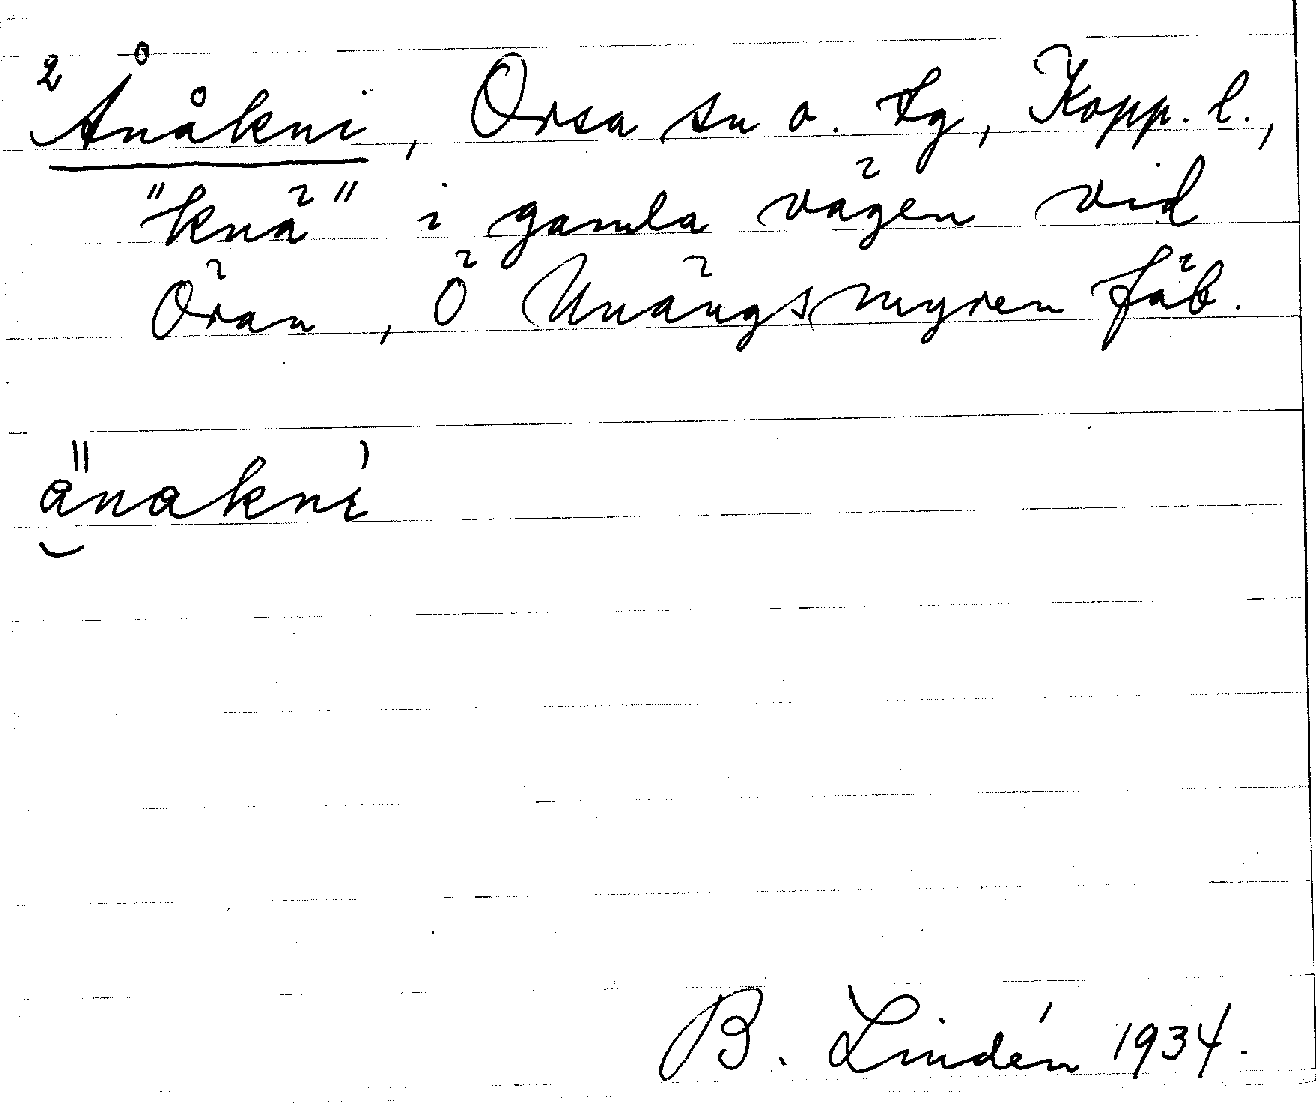 2 Ånåkni, Orsa sn o. tg, Kopp. l.,
"knä" i gamla vägen vid
Öran, Ö Unängsmyren fäb.
änakni
B. Lindén 1934.